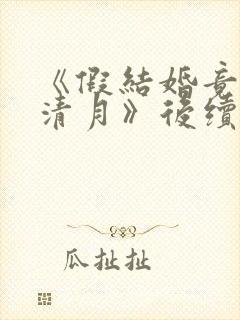 《假結婚竟
清月》後續
瓜扯扯